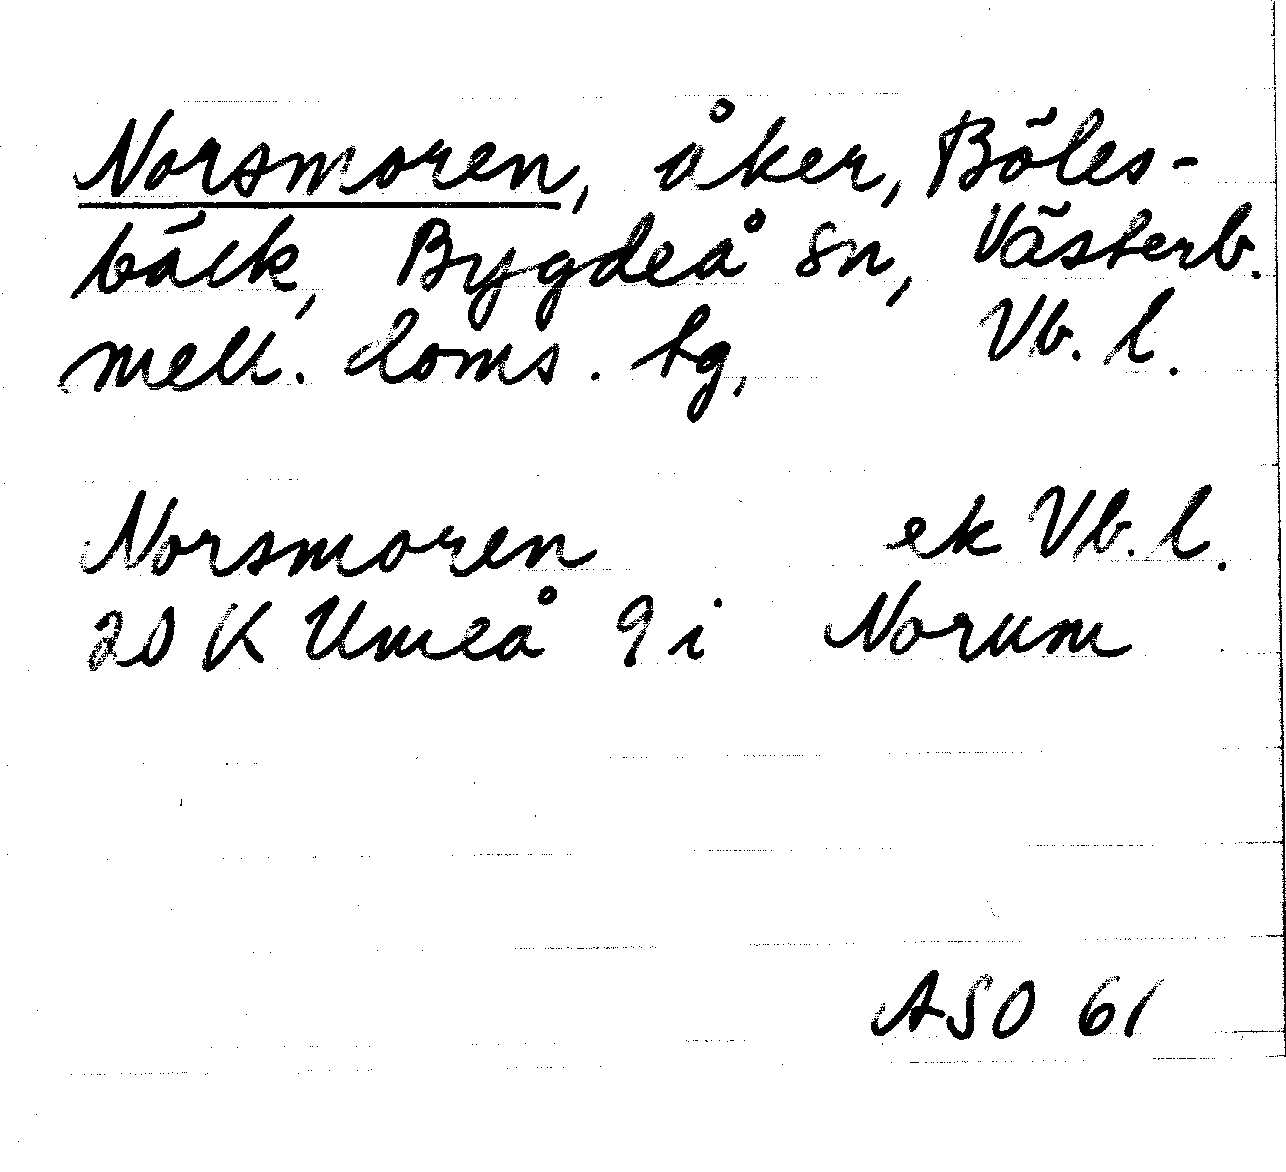 Norsmoren, åker, Böles-
bäck, Bygdeå sn, Västerb.
mell. doms. tg, Vb. l.
Norsmoren ek Vb. l.
20 K Umeå 9 i Norum
ASO 61